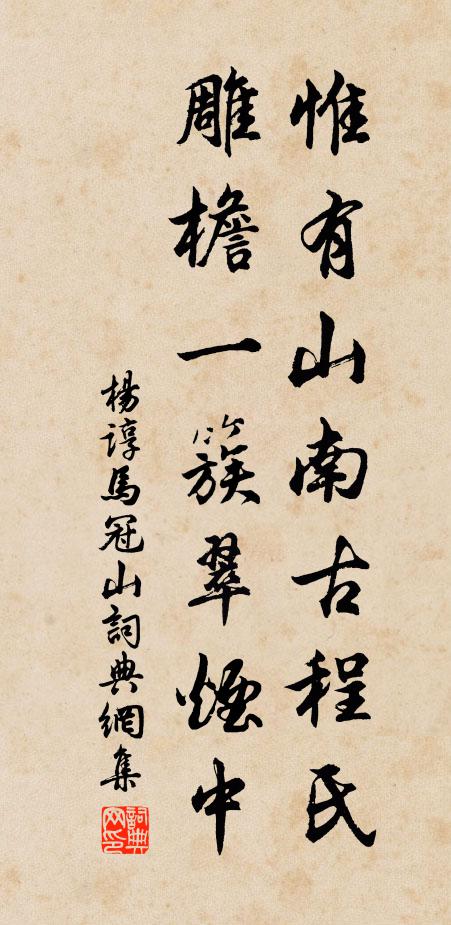 惟有山南古程氏
雕檐一簇翠煙中
楊諄馬冠山詞典網集
詞典网印